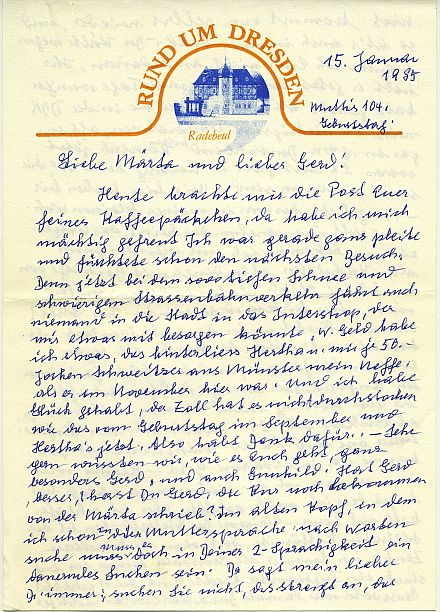 RUND UM DRESDEN
Radebeul
15. Januar
1985
Muttis 104.
Geburtstag!
Liebe Märta und lieber Gerd!
Heute brachte mir die Post Euer
feines Kaffeepäckchen, da habe ich mich
mächtig gefreut Ich war gerade ganz pleite
und fürchtete schon den nächsten Besuch.
Denn jetzt bei dem sooo tiefen Schnee und
schwierigen Strassenbahnverkehr fährt auch
niemand in die Stadt in das Intershop, der
mir etwas mit besorgen könnte, W. Geld habe
ich etwas, das hinterliess Herthan. mir je 50.-
Jochen Schweitzer aus Münster mein Neffe,
als er im November hier war. Und ich habe
Glück gehabt, der Zoll hat es nicht durchstochen
wie das vom Geburtstag im September und
Hertha's jetzt. Also habt Dank dafür. - Sehr
gern wüssten wir, wie es Euch geht, ganz
besonders Gerd, und auch Gunhild. Hast Gerd
die Kur noch bekommen
von der Märta schrieb? Im alten Kopf, in dem
ich schon in der Muttersprache nach Worten
suche muss es doch in Deiner 2-Sprachigkeit ein
dauerndes Suchen sein. Da sagt mein lieber
Dr immer: suchen Sie nicht, das strengt an, die